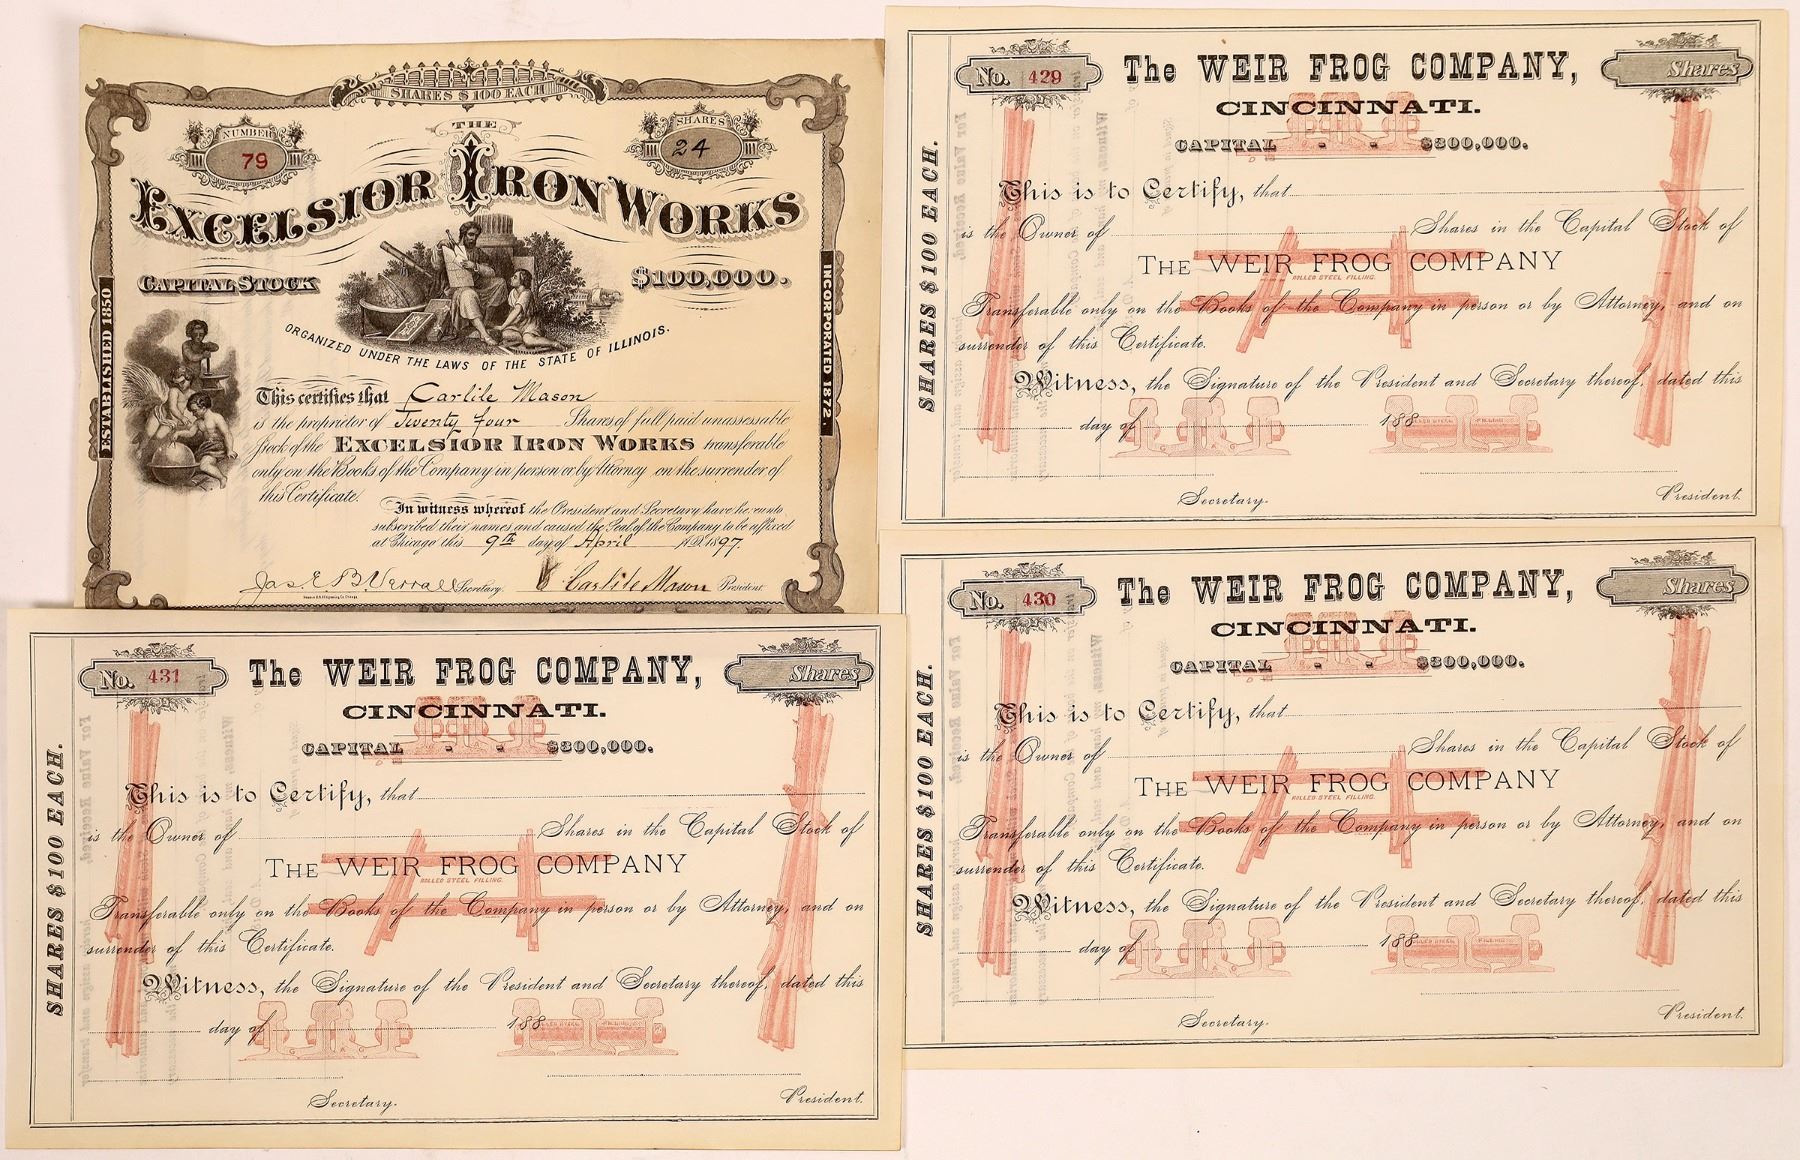 SHARES $100 EACH
NUMBER
79
THE
SHARES
24
EXCELSIOR IRON WORKS
CAPITAL STOCK
$100,000.
ORGANIZED UNDER THE LAWS OF THE STATE OF ILLINOIS.
ESTABLISHED 1850
INCORPORATED 1872.
This certifies that Carlile Mason
is the proprietor of Twenty four Shares of full paid unassessable
Stock of the EXCELSIOR IRON WORKS transferable
only on the Books of the Company in person or by Attorney on the surrender of
this Certificate.
In witness whereof the President and Secretary have hereunto
subscribed their names and caused the Seal of the Company to be affixed
at Chicago this 9th day of April A.D. 1897.
Jas E B Verrall Secretary. Carlile Mason President
No. 429
The WEIR FROG COMPANY,
Shares
CINCINNATI.
CAPITAL - - $300,000.
SHARES $100 EACH.
This is to Certify, that
is the Owner of Shares in the Capital Stock of
THE WEIR FROG COMPANY
ROLLED STEEL FILLING.
Transferable only on the Books of the Company in person or by Attorney, and on
surrender of this Certificate.
Witness, the Signature of the President and Secretary thereof, dated this
day of 188
ROLLED STEEL FILLING
Secretary.
President.
No. 431
The WEIR FROG COMPANY,
Shares
CINCINNATI.
CAPITAL - - $300,000.
SHARES $100 EACH.
This is to Certify, that
is the Owner of Shares in the Capital Stock of
THE WEIR FROG COMPANY
ROLLED STEEL FILLING.
Transferable only on the Books of the Company in person or by Attorney, and on
surrender of this Certificate.
Witness, the Signature of the President and Secretary thereof, dated this
day of 188
ROLLED STEEL FILLING
Secretary.
President.
No. 430
The WEIR FROG COMPANY,
Shares
CINCINNATI.
CAPITAL - - $300,000.
SHARES $100 EACH.
This is to Certify, that
is the Owner of Shares in the Capital Stock of
THE WEIR FROG COMPANY
ROLLED STEEL FILLING.
Transferable only on the Books of the Company in person or by Attorney, and on
surrender of this Certificate.
Witness, the Signature of the President and Secretary thereof, dated this
day of 188
ROLLED STEEL FILLING
Secretary.
President.